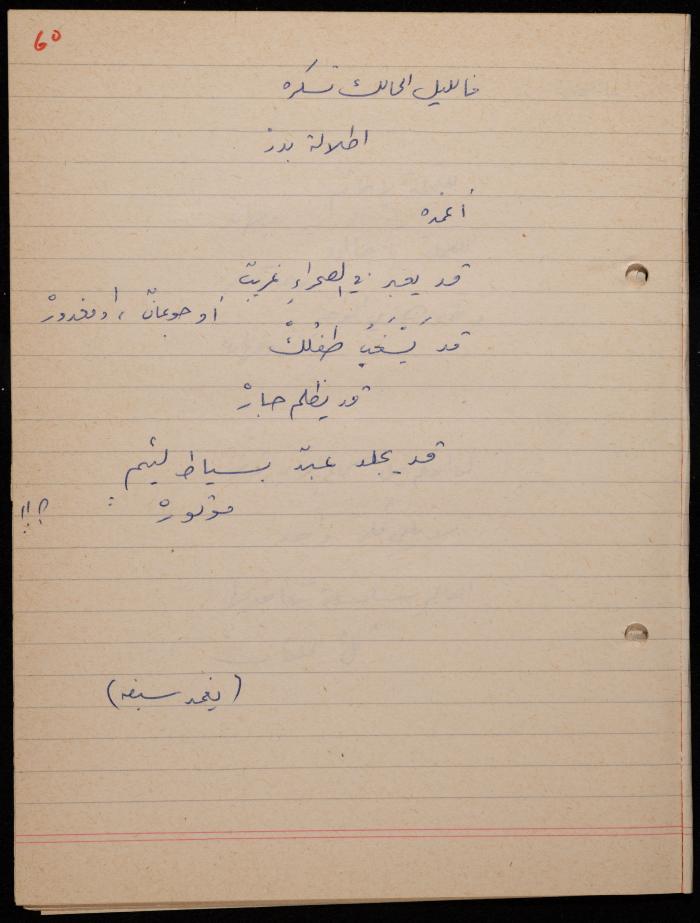 ٦٥
فالليل الحالك تسكره
اطلالة بدرْ
أغمده
قد يعبر في الصحراءِ غريبٌ
أو جوعانٌ ، أو مغدورْ
قد يَسْغَبُ طفلكْ
قد يظلم جبارْ
قد يجلد عبدٌ بسياط لئيمٍ
موتورْ !! ؟
( يغمد سيفه )